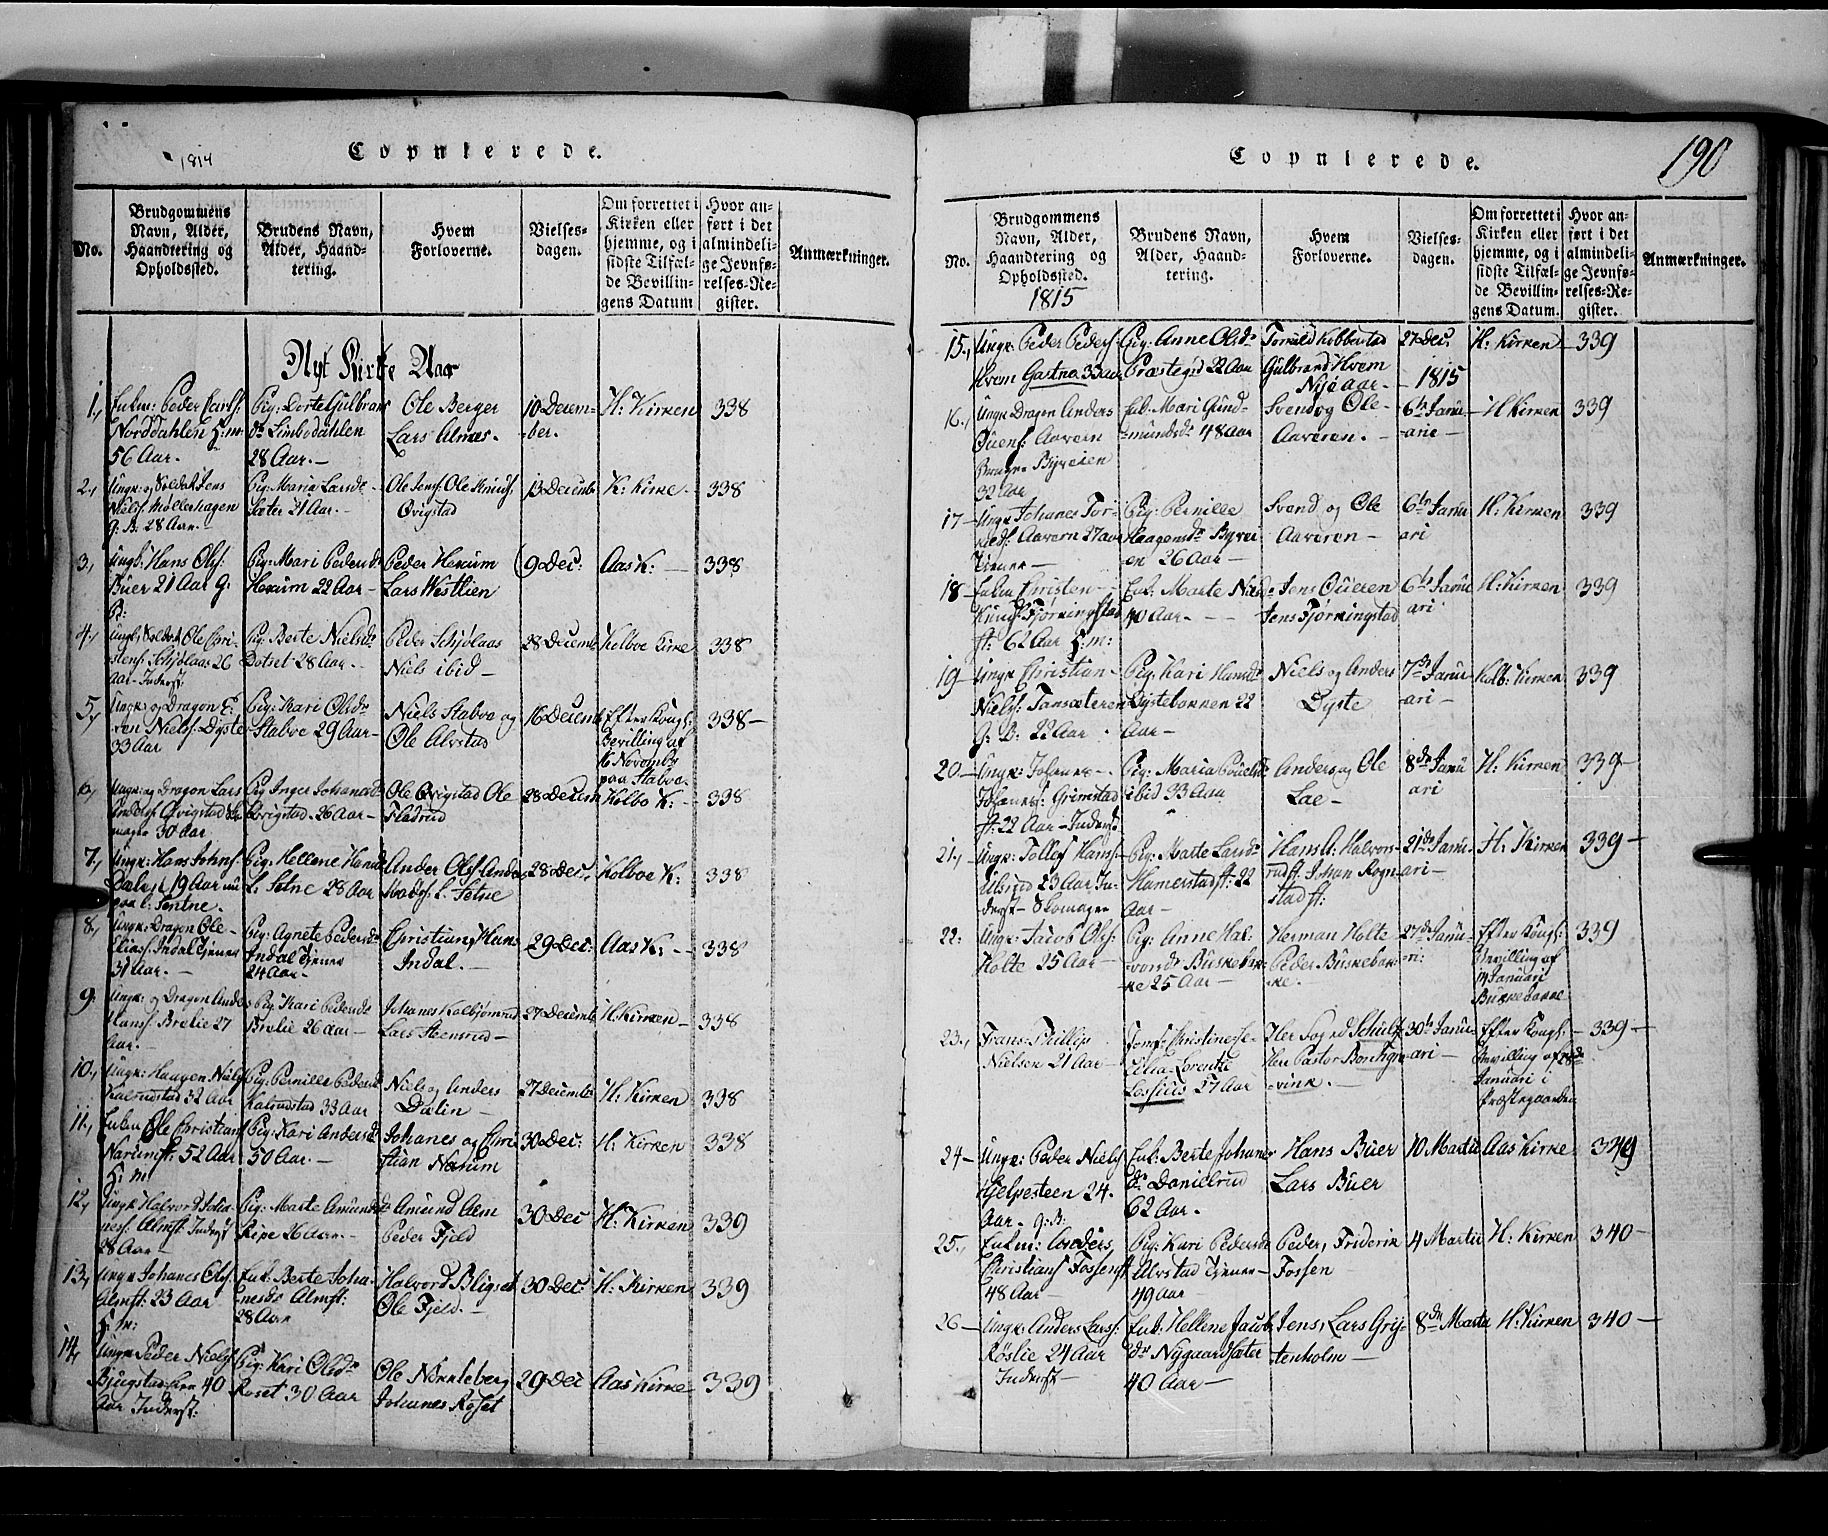 1814
Copulerede.
No.
Brudgommens Navn, Alder, Haandtering og Opholdssted.
Brudens Navn, Alder, Haandtering.
Hvem Forloverne.
Vielsesdagen.
Om forrettet i Kirken eller hjemme, og i sidste Tilfælde Bevillingens Datum
Hvor anført i det almindelige Jevnførelses-Register.
Anmærkninger.
Nyt Kirke Aar
1., Enkm: Peder
Norddahlen H:m:
56 Aar.
Pig: Dorte Gulbrans
dr Limbodahlen
28 Aar.—
Ole Berger
Lars Almes.
10 Decem-
ber.
H: Kirken
338
2., Ungk: og Soldat Jens
Niels: Møllerhagen
g. B. 28 Aar.
Pig: Maria Larsdr
Sæter 21 Aar.—
Ole Jens: Ole Knuds:
Qvigstad
13 Decembr
K: Kirke.
338
3., Ungk: Hans Ols:
Büer 21 Aar g:
B:
Pig: Mari Pedersdr
Hexum 22 Aar—
Peder Hexum
Lars Westlien
9 Dec:
Aas K:
338
4., Ungk: Soldat Ole Chri-
stens: Schjølaas 26
Aar- Inderst.
Pig: Berte Nielsdr
Dotset 28 Aar.—
Peder Schjølaas
Niels ibid—
28 Decembr
Kolboe Kirke
338
5., Ungk: og Dragon E-
ven Niels: Dyste
33 Aar
Pig: Kari Olsdr
Staboe 29 Aar—
Niels Staboe og
Ole Alvstad
16 Decembr
Efter Kongl:
Bevilling af
16 Novembr
paa Staboe.
338—
6., Ungk: og Dragon Lars
Anders: Qvigstad
30 Aar
Pig: Inger Johannesdr
Qvigstad. 26 Aar—
Ole Qvigstad Ole
Fladrud
28 Decem
Kolbo K:—
338
7., Ungk: Hans Johns:
19 Aar nu
paa l: Sætne.
Pig: Hellene Hansdr
l. Setne 28 Aar
Ander Ols: Anders
Mads: l. Setne
28 Dec.
Kolboe K:
338
8., Ungk: Dragon Ole
Elias: Indal Tjener
31 Aar.—
Pig: Agnete Pedersdr
Indal Tjener
24 Aar.
Christian, Hans
Indal.—
29 Dec:
Aas K:—
338
9. Ungk: og Dragon Anders
Hans: Brelie 27
Aar.—
Pig: Kari Pedersdr
Brelie 26 Aar—
Johanes Kolbjørnrud
Lars Steensrud—
27 Decembr
H: Kirken—
338
10., Ungk: Haagen Niels:
Kalrudstad 32 Aar
Pig: Pernille Pedersdr
Kalrudstad 33 Aar
Niels og Anders
Dælin—
27 Decembr
H: Kirken
338
11., Enkm Ole Christians:
Narum ft: 52 Aar
H: m:
Pig: Kari Andersdr
50 Aar.—
Johanes og Chri
stian Narum
30 Dec:
H: Kirken
338
12., Ungk: Halvord Joha-
nes: Almft: Inderst
28 Aar—
Pig: Marte Amunds
Ripe 26 Aar.—
Amund Aem
Peder Fjeld
30 Dec
H: Kirken
339
13., Ungk: Johanes Ols:
Almft: 23 Aar
H: m:
Enk: Berte Joha-
nesdr Almft:
28 Aar
Halvord Bligset
Ole Fjeld.—
30 Dec:
H: Kirken
339
14., Ungk: Peder Niels:
Bjugstad 40
Aar Inderst:
Pig: Kari Olsdr
Roset 30 Aar
Ole Nøkkleberg
Johanes Roset
29 Dec
Aas Kirke
339
190
Copulerede.
No.
Brudgommens Navn, Alder, Haandtering og Opholdssted.
1815
Brudens Navn, Alder, Haandtering.
Hvem Forloverne.
Vielsesdagen.
Om forrettet i Kirken eller hjemme, og i sidste Tilfælde Bevillingens Datum.
Hvor anført i det almindelige Jevnførelses-Register.
Anmærkninger.
15., Ungk: Peder Peders:
Hvem Gastna 33 aar
Pig: Anne Olsdr
Præstegrd 22 Aar
Torrild Kobberstad
Gulbrand Hvem
27 Dec.
H: Kirken—
339
Nyt aar—
—1815
16., Ungk Dragon Anders
Juens: Aaveren
Byveien
32 Aar
Enk: Mari Gund-
mundsdr 48 Aar
Svend og Ole
Aaveren.—
6te Janu-
arie—
H: Kirken
339
17— Ungk Johanes Tor-
Aaveren 27 aar
Tjener—
Pig: Pernille
Haagensdr Byvei
en 26 Aar—
Svend og Ole
Aaveren—
6te Janu
ari
H: Kirken
339
18— Enkm Christen
Knuds: Fjørningstad
ft: 62 Aar H:m:
Enk: Marte Nielsdr
40 Aar.—
Jens Oueren
Jens Fjørningstad
6te Janu
ari
H: Kirken
339
19— Ungk Christian
Niels: Tansæteren
g: B: 22 Aar
Pig: Kari Hansdr
Dystebakken 22
Aar—
Niels og Anders
Dyste
7de Janu
ari—
Kolb: Kirken
339
20— Ungk: Johannes
Johanes: Grimstad
ft: 22 Aar—Inderst
Pig: Maria Poulsdr
ibid 33 Aar
Anders og Ole
Lae—
8de Janu
ari
H: Kirken
339—
21., Ungk: Tollef Hans:
Ulsrud 23 Aar In-
derst— Skomager
Pig: Marte Larsdr
Hamerstad ft: 22
Aar—
Hans A: Halvor
rud ft: Johan Rogn
stad ft:
21de Janu
ari—
H: Kirken
339—
22: Ungk: Jacob Ols:
Holte 25 Aar—
Pig: Anne Hal-
vorsdr Buskebak-
ke 25 Aar—
Herman Holte
Peder Buskebak-
ke.
27de Janu-
ri:
Efter Kongl:
Bevilling af
14 Januari
Buskebakke
339
23., Frans Phillip
Nielsen 21 Aar—
Jomf: Christine Ce-
cilia Lorentze
Lossius 57 Aar
Her Sogd Schultz
Her Pastor
30te Janu-
ari—
Efter Kongl:
Bevilling af 28de
Januari i
Præstegaarden
339—
24— Ungk: Peder Niels:
Hjelpesteen 24.
Aar. g:B:
Enk: Berte Johanes
dr Danielrud
62 Aar.
Hans Büer
Lars Büer
10 Martii
Aas Kirke
25., Enkm: Anders,
Christians: Fossen ft
48 Aar—
Pig: Kari Pedersdr
Alvstad Tjener—
49 Aar—
Peder, Friderik
Fossen—
4 Martii
H: Kirken
340—
26— Ungk: Anders Lars:
Røslie 24 Aar
Inderst—
Enk: Hellene Jacobs
dr Nygaardsæter
40 Aar—
Jens, Lars Grij-
tenholm—
8de Martii
H: Kirken
340—